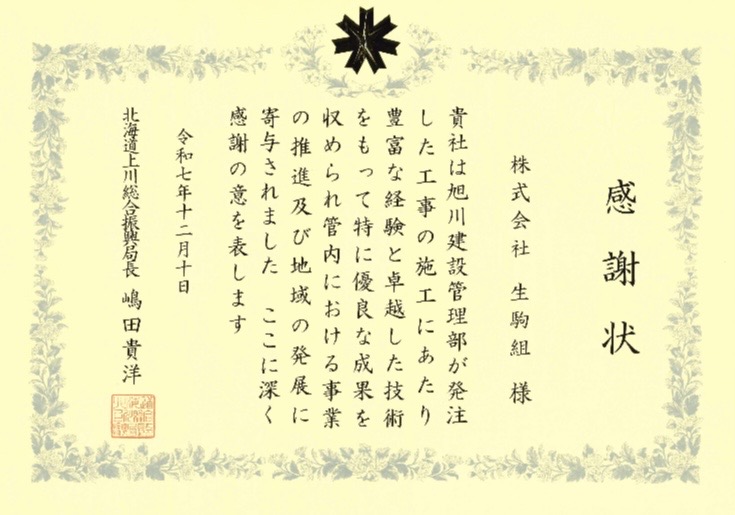 感謝状
株式会社 生駒組 様
貴社は旭川建設管理部が発注
した工事の施工にあたり
豊富な経験と卓越した技術
をもって特に優良な成果を
収められ管内における事業
の推進及び地域の発展に
寄与されました ここに深く
感謝の意を表します
令和七年十二月十日
北海道上川総合振興局長 嶋田貴洋